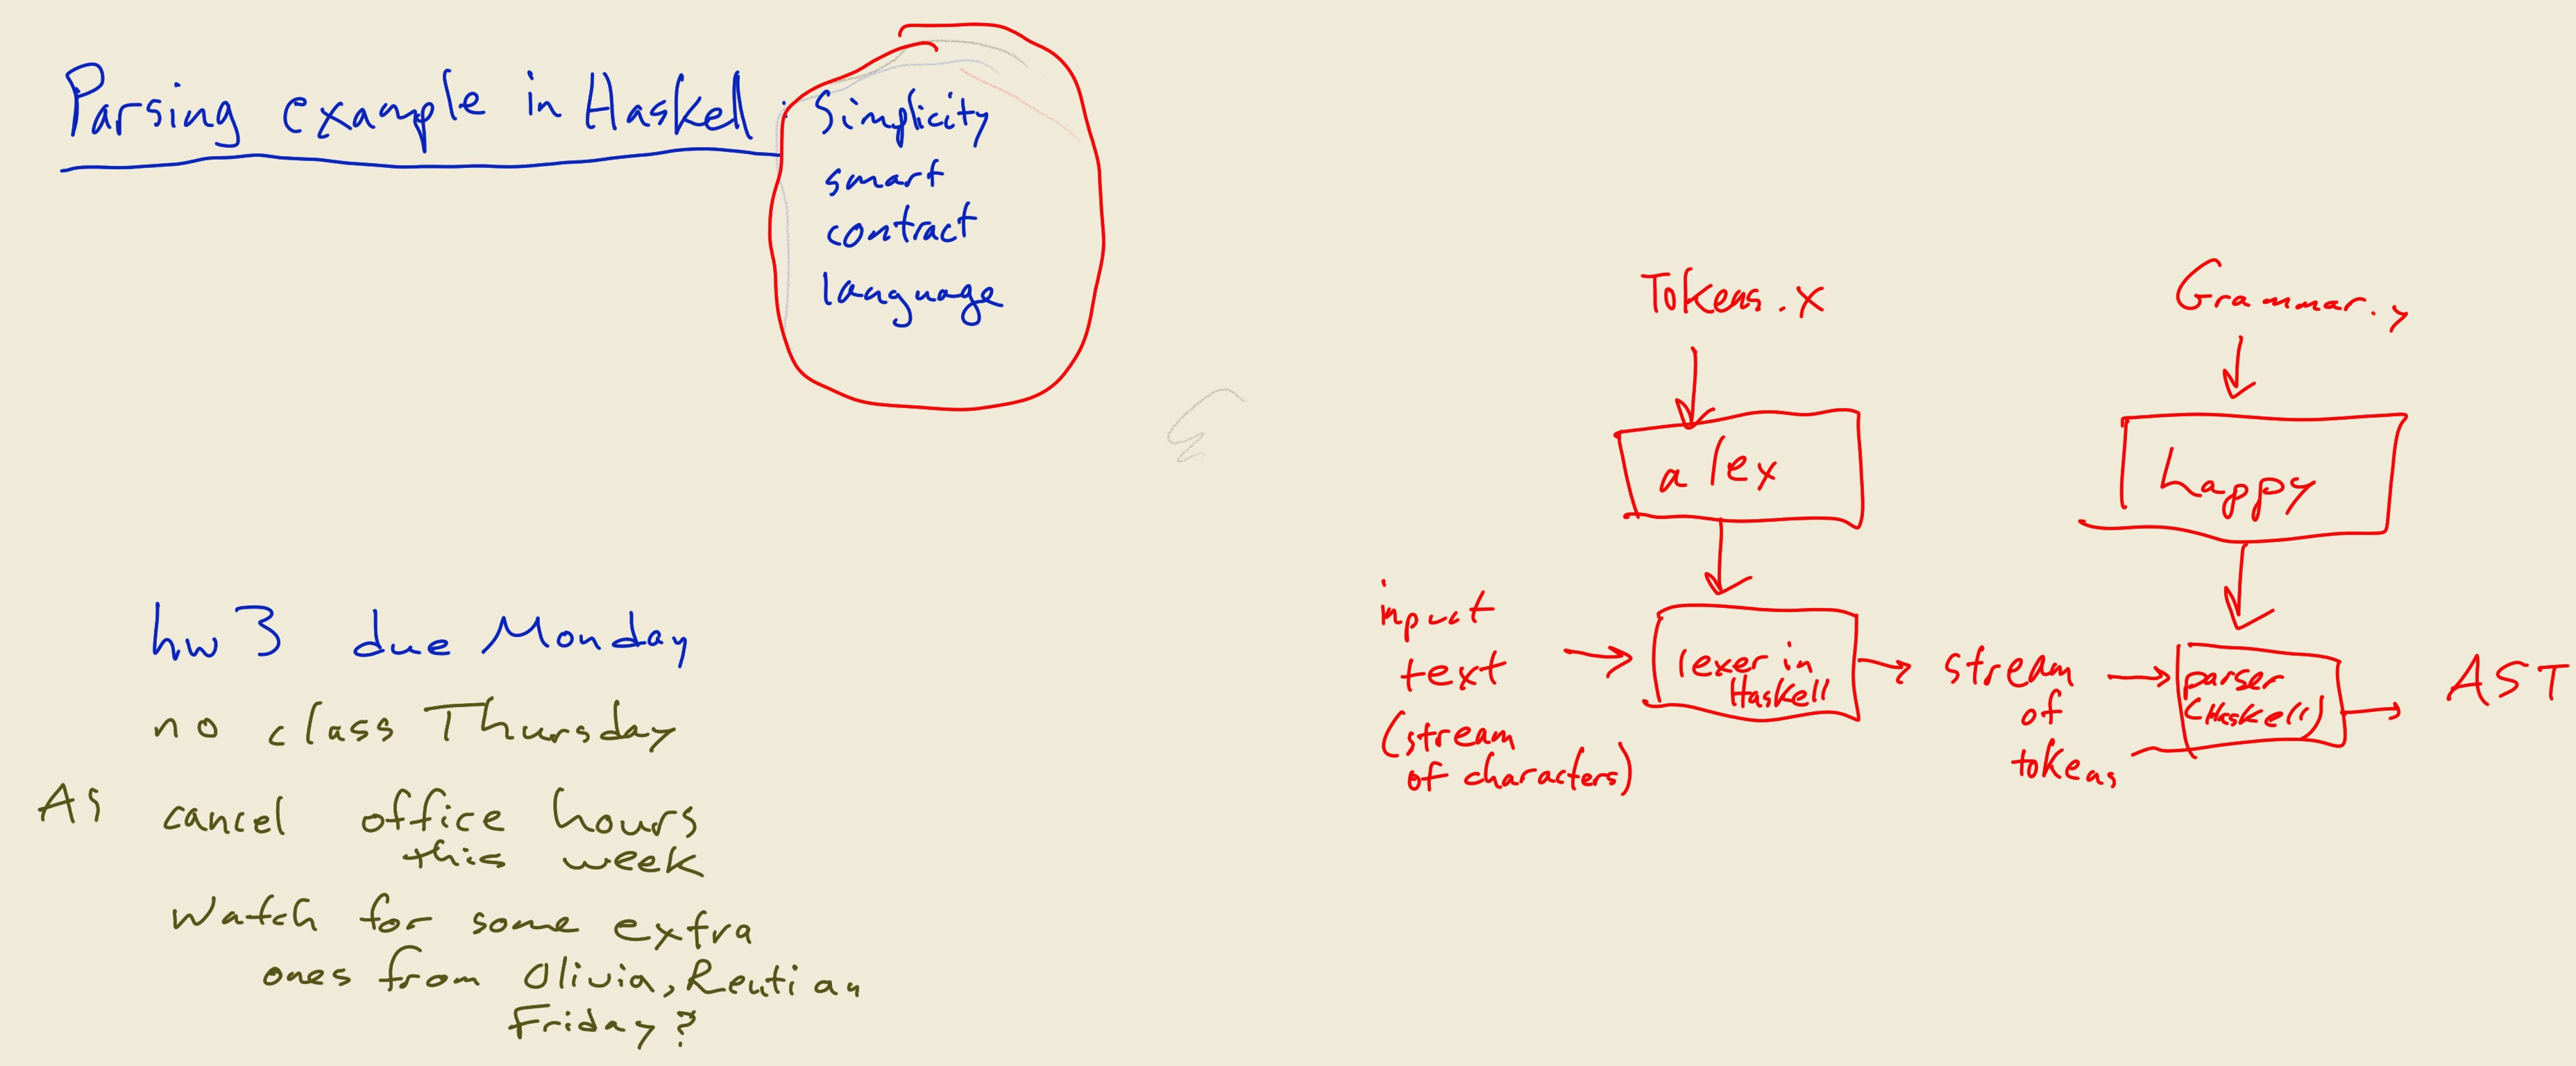 Parsing example in Haskell : Simplicity
smart
contract
language
hw 3 due Monday
no class Thursday
AS cancel office hours
this week
Watch for some extra
ones from Olivia, Reutian
Friday?
Tokens.x
alex
input
text
(stream
of characters)
lexer in
Haskell
stream
of
tokens
Grammar.y
happy
parser
(Haskell)
AST